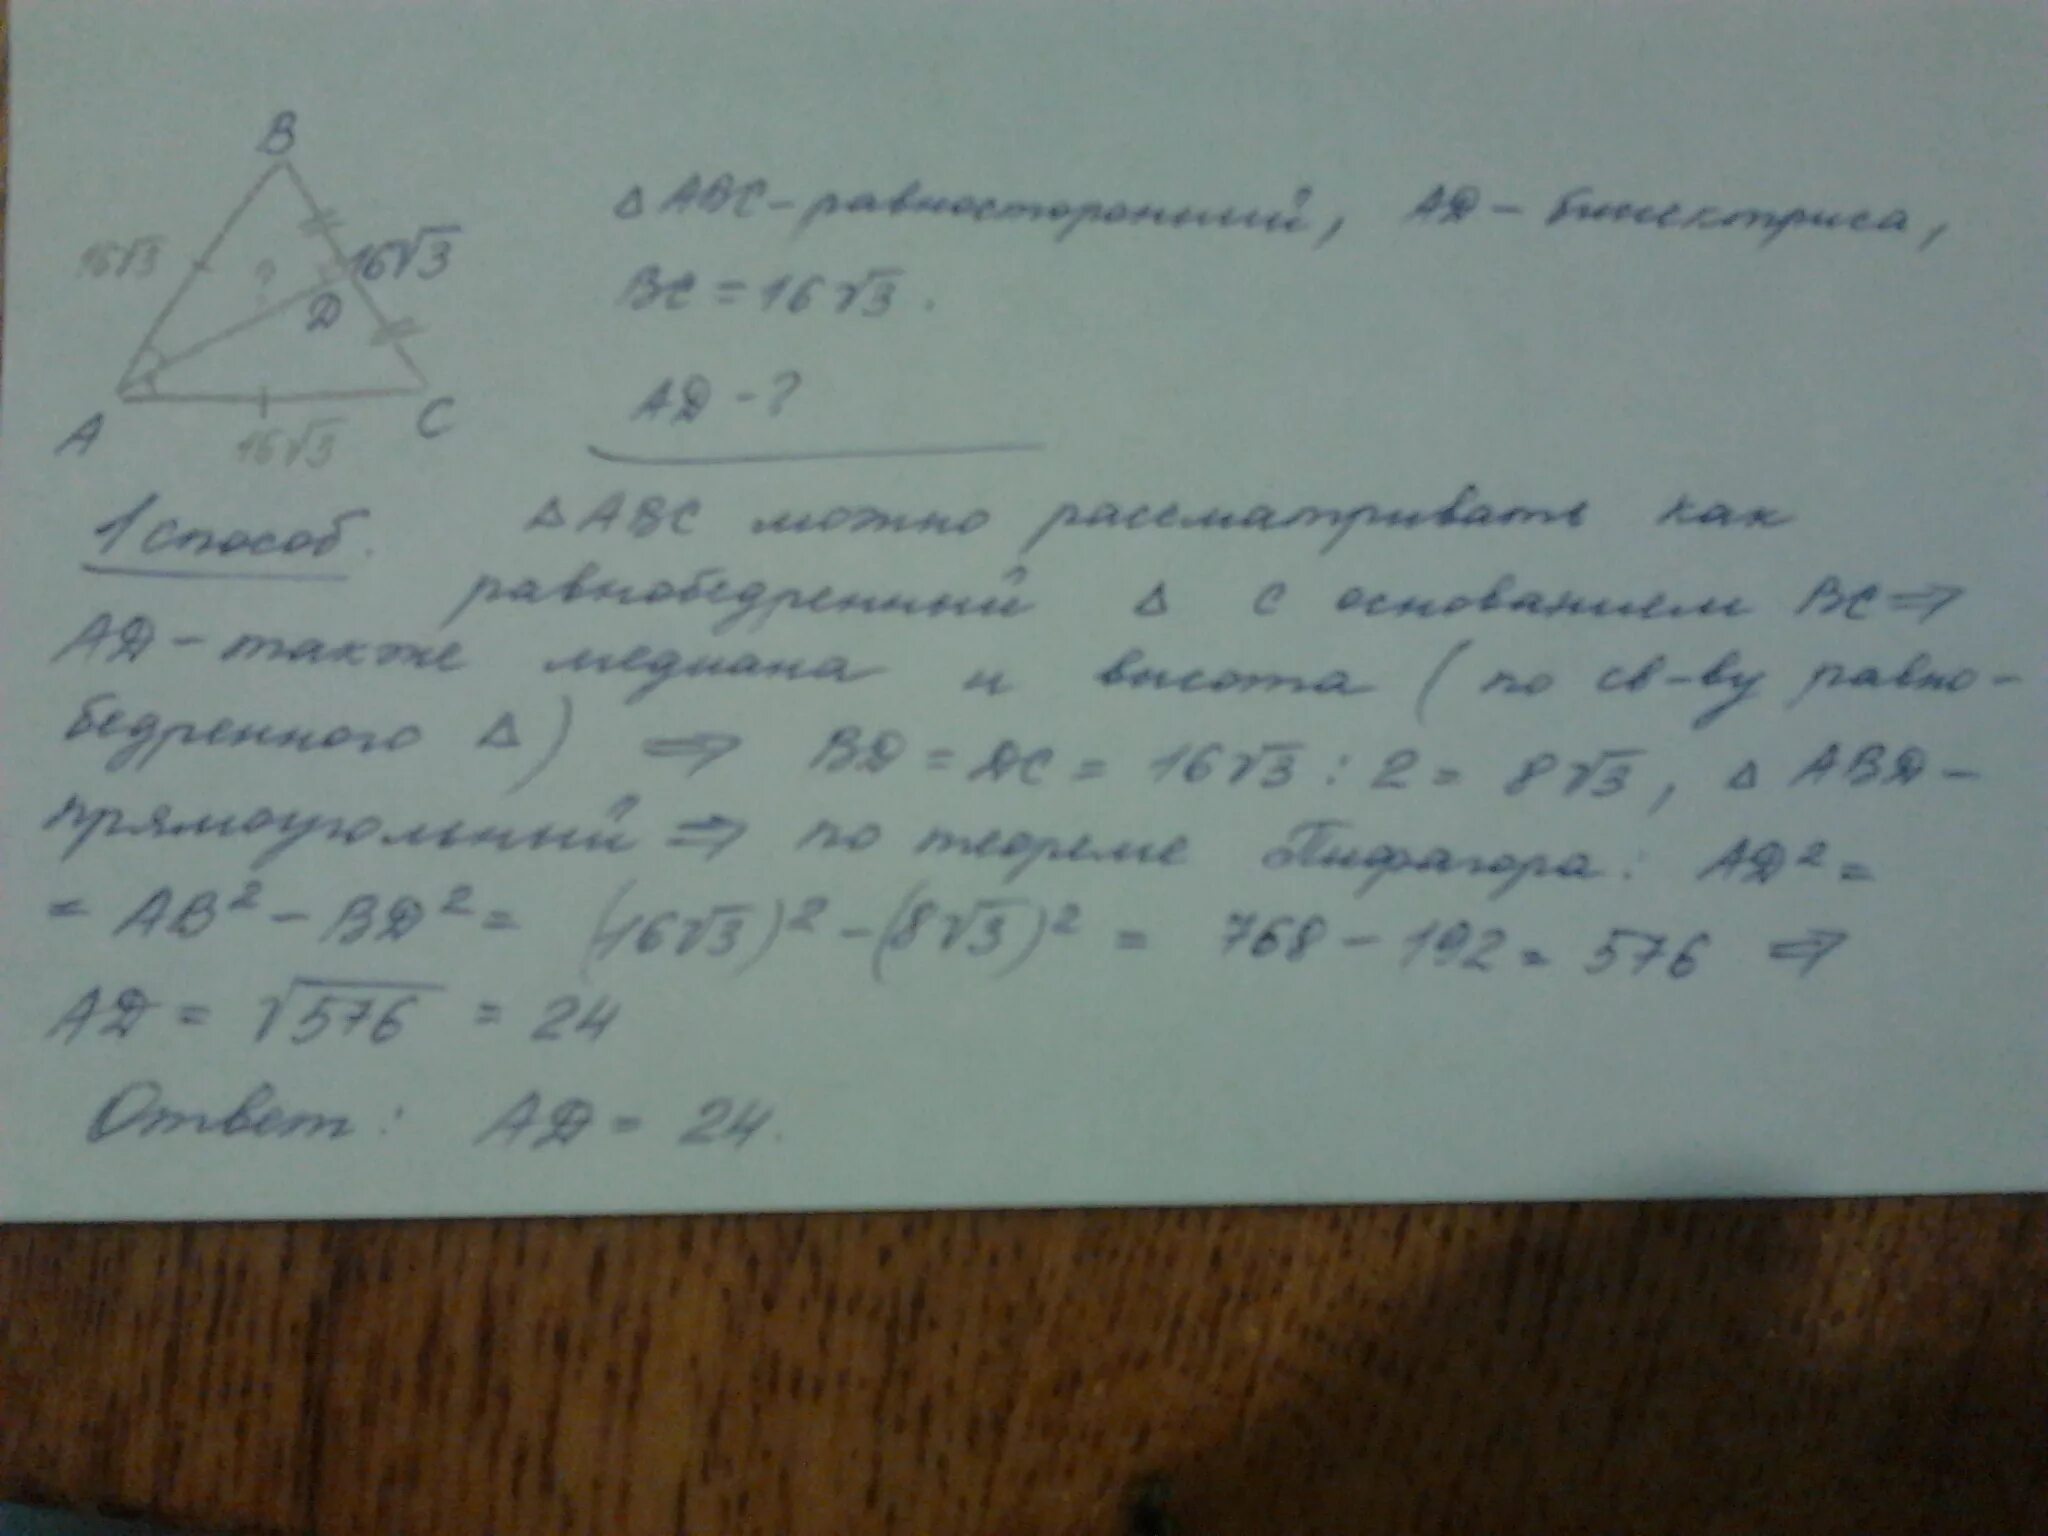 B
16√3
?
16√3
D
A
16√3
C
△ABC - равносторонний, AD - биссектриса,
BC = 16√3.
AD - ?
1 способ. △ABC можно рассматривать как
равнобедренный △ с основанием BC ⇒
AD - также медиана и высота (по св-ву равно-
бедренного △) ⇒ BD = DC = 16√3 : 2 = 8√3, △ABD -
прямоугольный ⇒ по теореме Пифагора: AD² =
= AB² - BD² = (16√3)² - (8√3)² = 768 - 192 = 576 ⇒
AD = √576 = 24
Ответ: AD = 24.